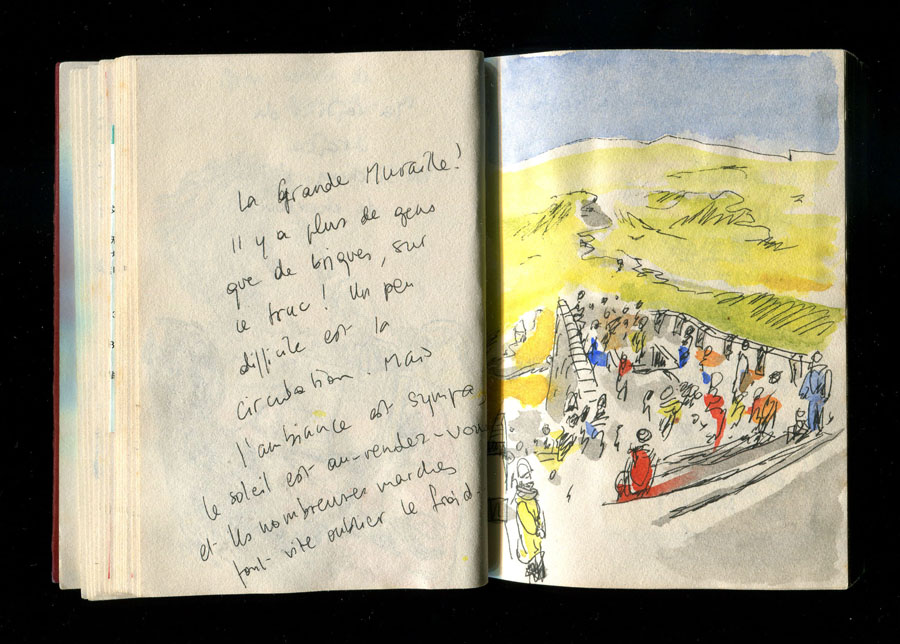 La Grande Muraille !
Il y a plus de gens
que de briques, sur
ce truc ! Un peu
difficile est la
circulation. Mais
l'ambiance est sympa,
le soleil est au-rendez-vous
et les nombreuses marches
font vite oublier le froid.